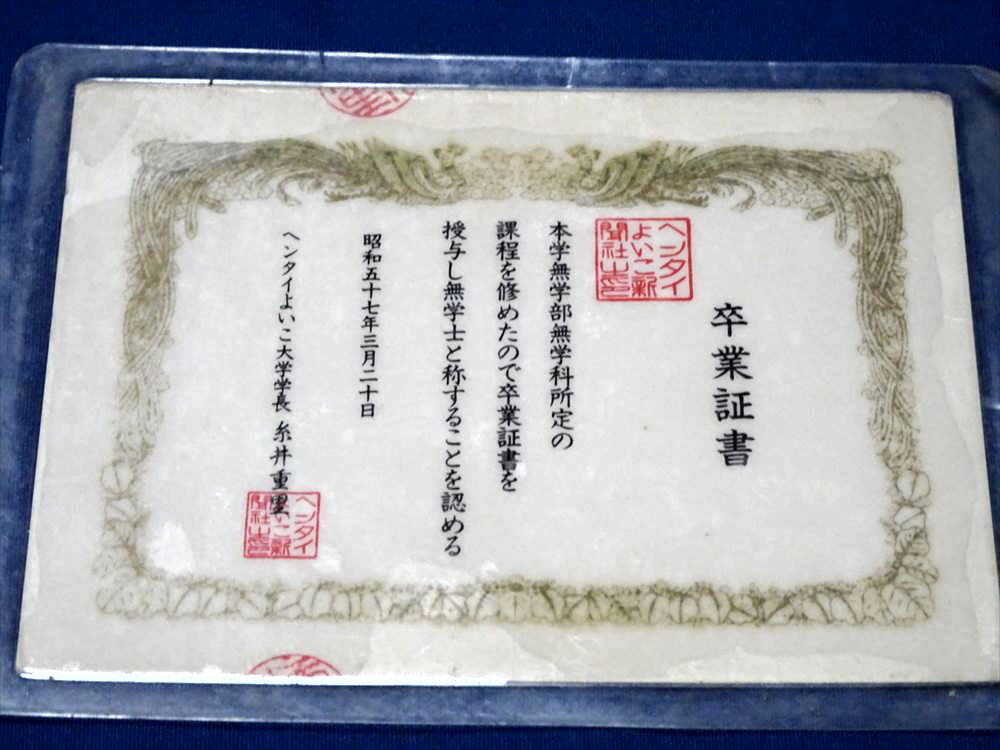 卒業証書
ヘンタイ
よいこ新
聞社之印
本学無学部無学科所定の
課程を修めたので卒業証書を
授与し無学士と称することを認める
昭和五十七年三月二十日
ヘンタイよいこ大学学長 糸井重里
ヘンタイ
よいこ新
聞社之印